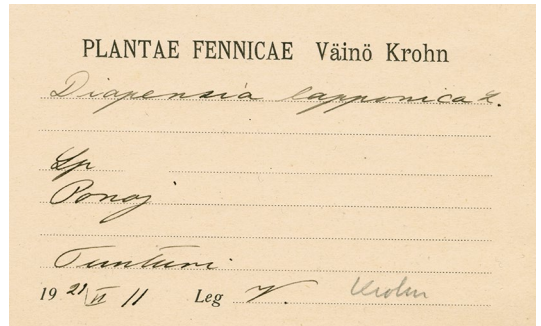 PLANTAE FENNICAE Väinö Krohn
Diapensia lapponica L.
Lp
Ponoj
Tunturi
19 21/VI 11 Leg V. Krohn